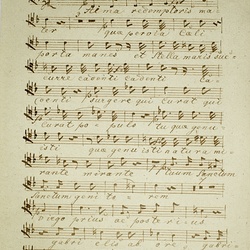 Alma redemptoris ma
ter quae pervia Caeli
porta manes et Stella maris suc
curre cadenti cadenti Ca
denti Surgere qui curat qui
curat po pulo tu quae genu
isti quae genuisti natura mi
rante mirante tuum Sanctum
Sanctum geni to rem
Virgo prius ac poste rius
gabri elis ab ore gabri